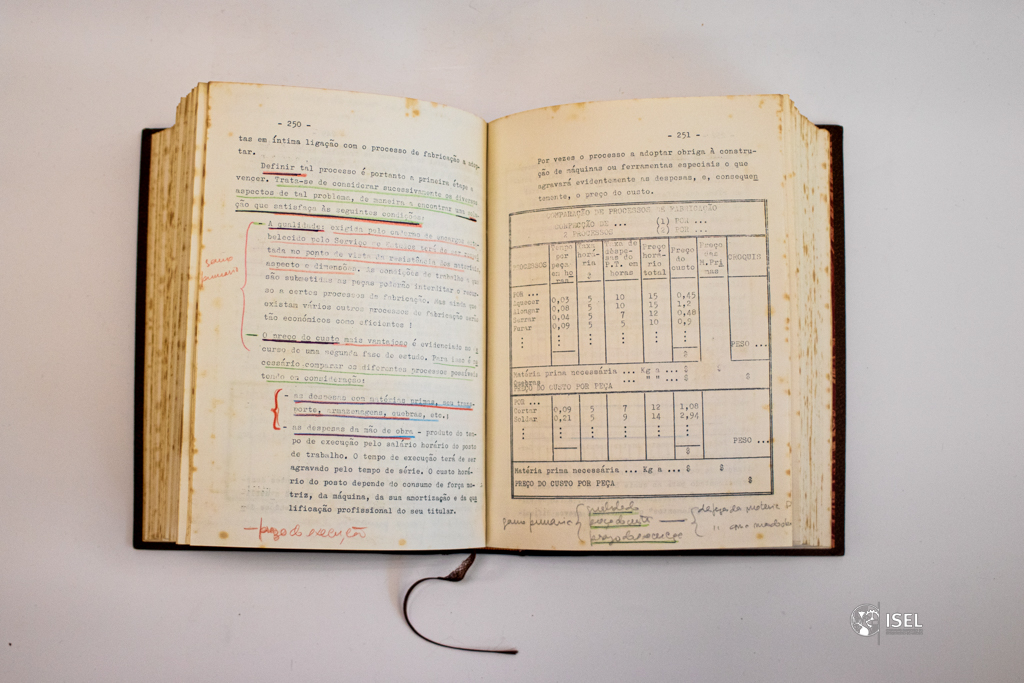 - 250 -
tas em íntima ligação com o processo de fabricação a adop-
tar.
Definir tal processo é portanto a primeira étape a
vencer. Trata-se de considerar sucessivamente os diversos
aspectos de tal problema, de maneira a encontrar uma solu-
ção que satisfaça às seguintes condições:
A qualidade: exigida pelo caderno de encargos esta-
belecido pelo Serviço de Estudos terá de ser
tada no ponto de vista da resistência dos materiais,
aspecto e dimensões. As condições de trabalho a que
são submetidas as peças poderão interditar o recur-
so a certos processos de fabricação. Mas ainda que
existam vários outros processos de fabricação serão
tão económicos como eficientes !
O preço do custo mais vantajoso é evidenciado no
curso de uma segunda fase de estudo. Para isso é ne
cessário comparar os diferentes processos possíveis
tendo em consideração:
- as despesas com matérias primas, seu trans-
porte, armazenagens, quebras, etc.;
- as despesas da mão de obra - produto do tem-
po de execução pelo salário horário do posto
de trabalho. O tempo de execução terá de ser
agravado pelo tempo de série. O custo horá-
rio do posto depende do consumo de força mo-
triz, da máquina, da sua amortização e da qua
lificação profissional do seu titular.
- prazo de execução
- 251 -
Por vezes o processo a adoptar obriga à constru-
ção de máquinas ou ferramentas especiais o que
agravará evidentemente as despesas, e, consequen
temente, o preço do custo.
COMPARAÇÃO DE PROCESSOS DE FABRICAÇÃO
CONFECÇÃO DE ... (1) POR ...
2 PROCESSOS (2) POR ...
PROCESSOS Tempo por peça em ho ras Taxa horá- ria $ Taxa de despe- sas do P.T. em horas Preço horá- rio total Preço do custo Preço das M.PRI MAS CROQUIS
POR ...
Aquecer 0,03 5 10 15 0,45
Alongar 0,08 5 10 15 1,2
Serrar 0,04 5 7 12 0,48
Furar 0,09 5 5 10 0,5
PESO ...
$
Matéria prima necessária ... Kg a ... $ $
Quebras ... " " ... $ $
PREÇO DO CUSTO POR PEÇA
POR ...
Cortar 0,09 5 7 12 1,08
Soldar 0,21 5 9 14 2,94
PESO ...
$
Matéria prima necessária ... Kg a ... $ $
PREÇO DO CUSTO POR PEÇA $
qualidade
preço do custo
prazo de execução
ISEL